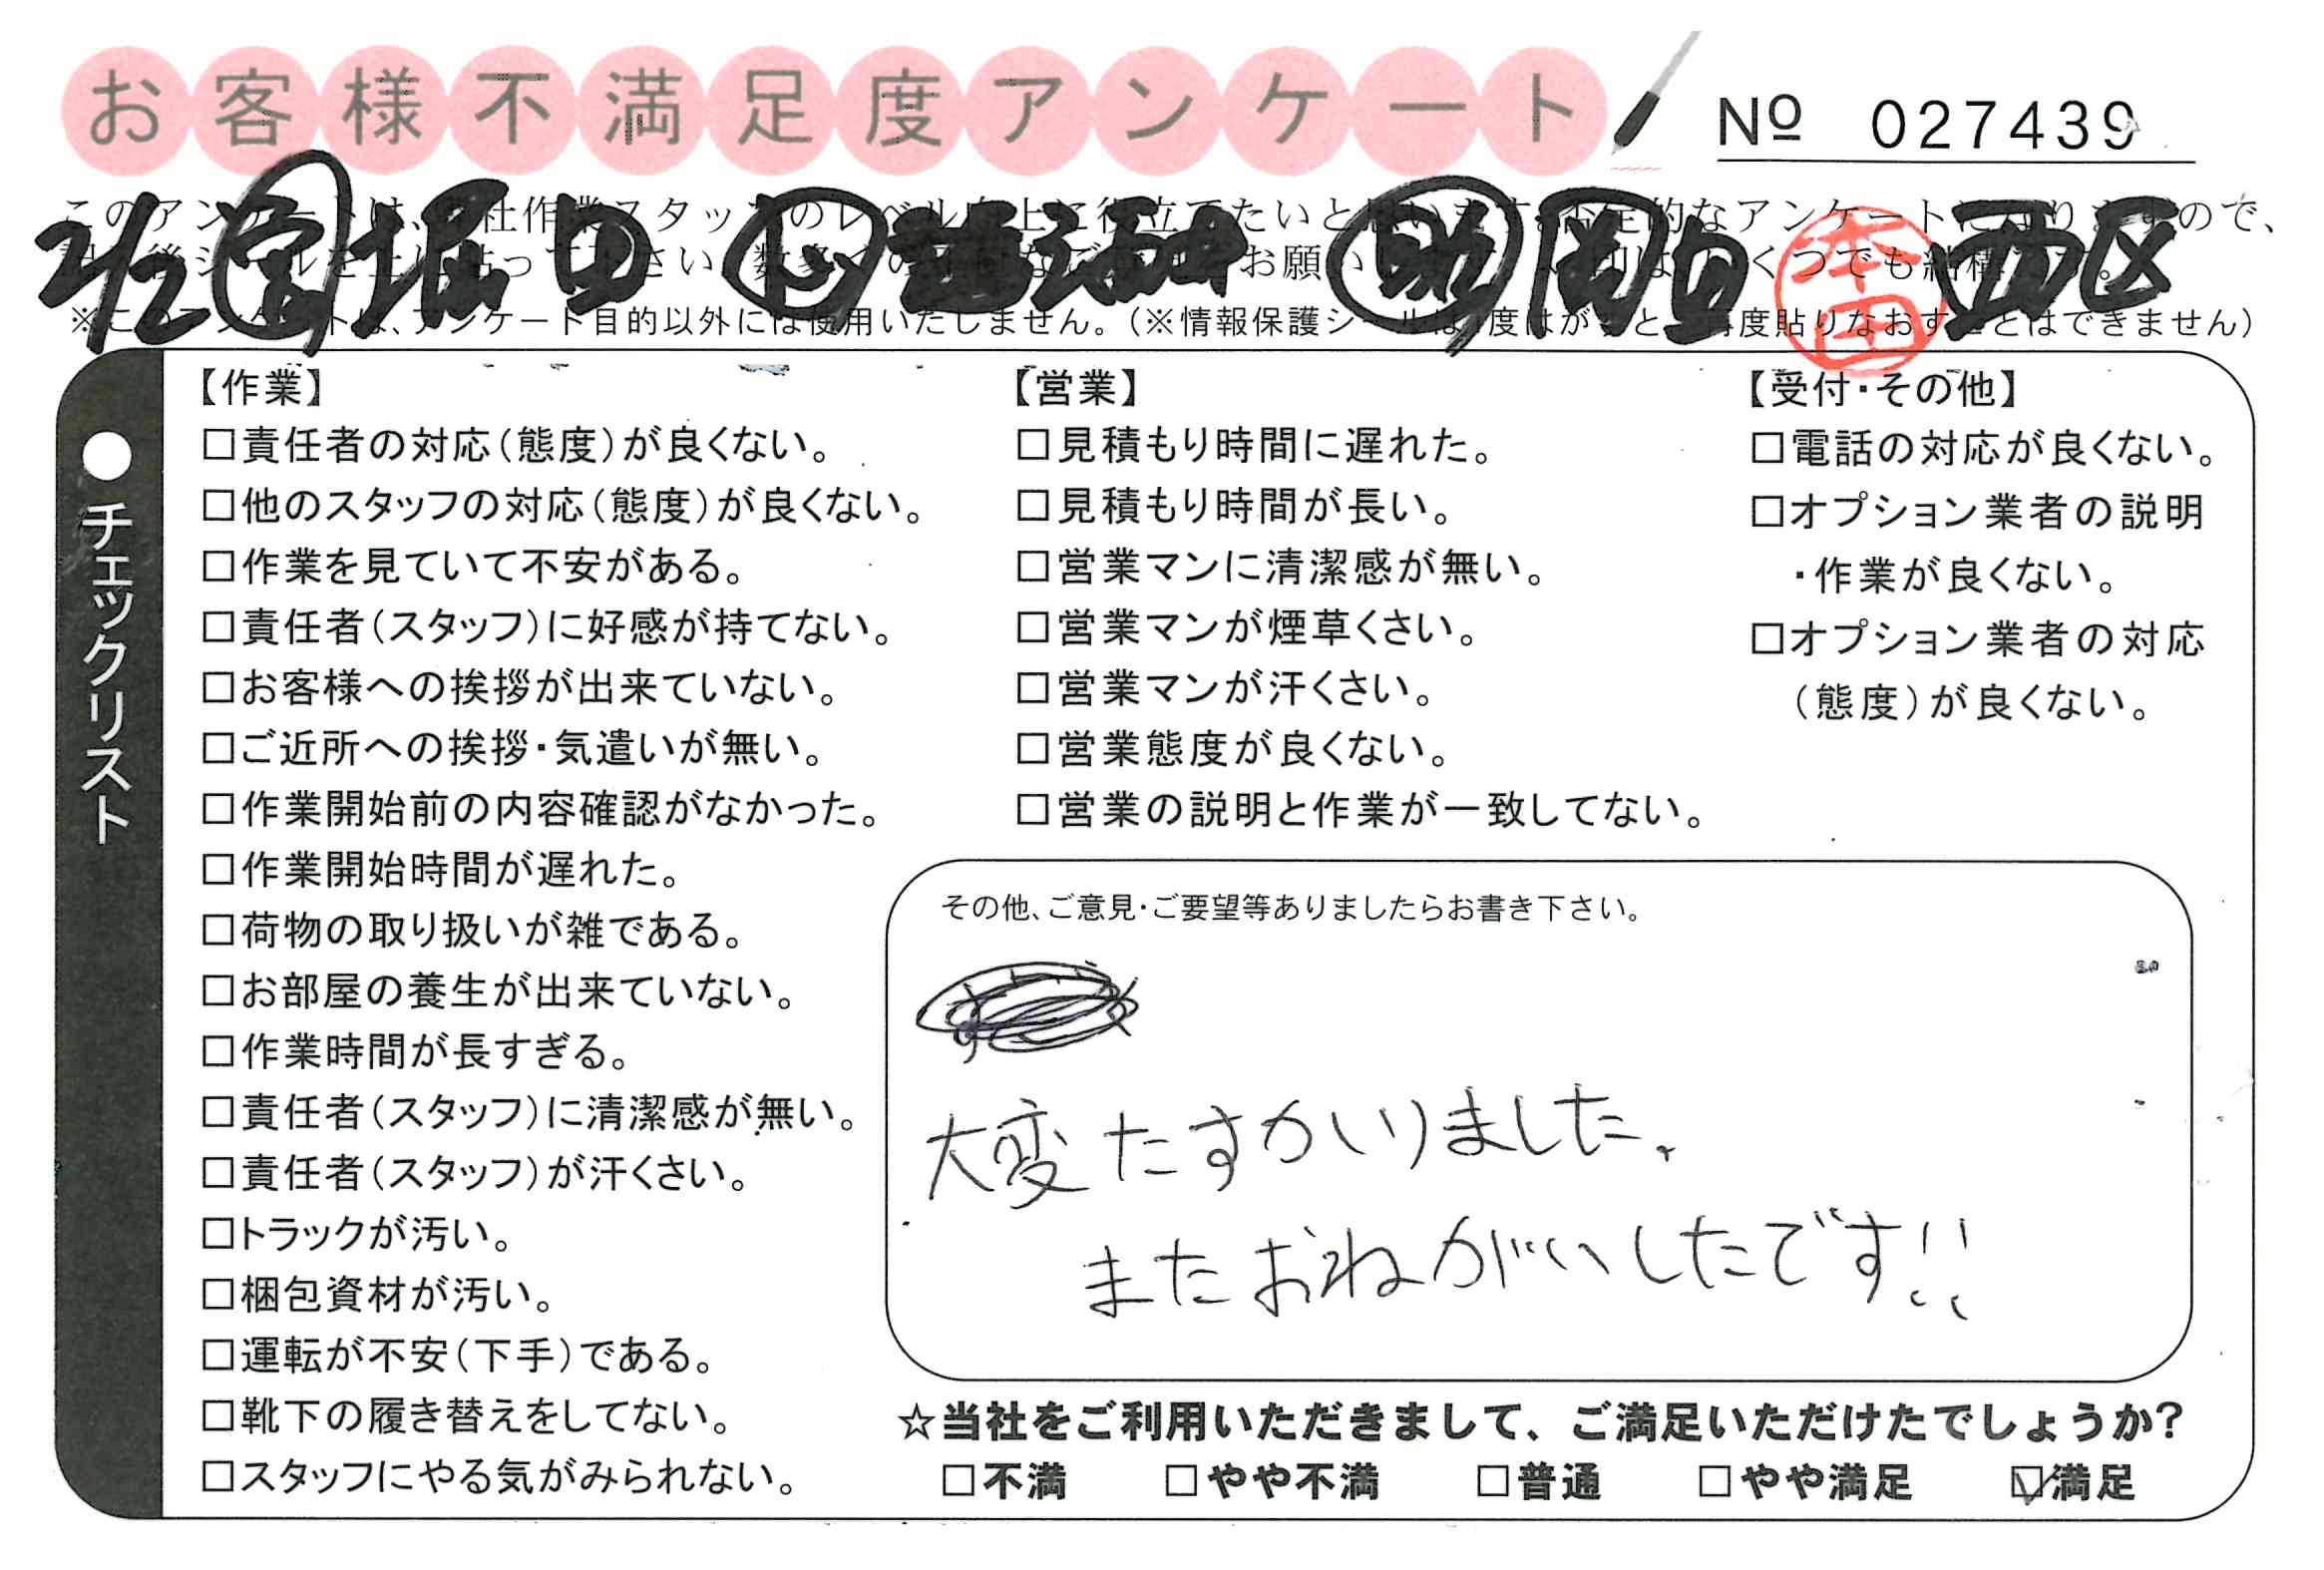 お客様不満足度アンケート
№ 027439
2/2 営 堀田 助 岡田 本田 西区
※このアンケートは、アンケート目的以外には使用いたしません。(※情報保護シールは1度はがすと、再度貼りなおすことはできません)
●チェックリスト
【作業】
□責任者の対応(態度)が良くない。
□他のスタッフの対応(態度)が良くない。
□作業を見ていて不安がある。
□責任者(スタッフ)に好感が持てない。
□お客様への挨拶が出来ていない。
□ご近所への挨拶・気遣いが無い。
□作業開始前の内容確認がなかった。
□作業開始時間が遅れた。
□荷物の取り扱いが雑である。
□お部屋の養生が出来ていない。
□作業時間が長すぎる。
□責任者(スタッフ)に清潔感が無い。
□責任者(スタッフ)が汗くさい。
□トラックが汚い。
□梱包資材が汚い。
□運転が不安(下手)である。
□靴下の履き替えをしてない。
□スタッフにやる気がみられない。
【営業】
□見積もり時間に遅れた。
□見積もり時間が長い。
□営業マンに清潔感が無い。
□営業マンが煙草くさい。
□営業マンが汗くさい。
□営業態度が良くない。
□営業の説明と作業が一致してない。
【受付・その他】
□電話の対応が良くない。
□オプション業者の説明
・作業が良くない。
□オプション業者の対応
(態度)が良くない。
その他、ご意見・ご要望等ありましたらお書き下さい。
大変たすかいりました。
またおねがいしたです!!
☆当社をご利用いただきまして、ご満足いただけたでしょうか?
□不満 □やや不満 □普通 □やや満足 ☑満足